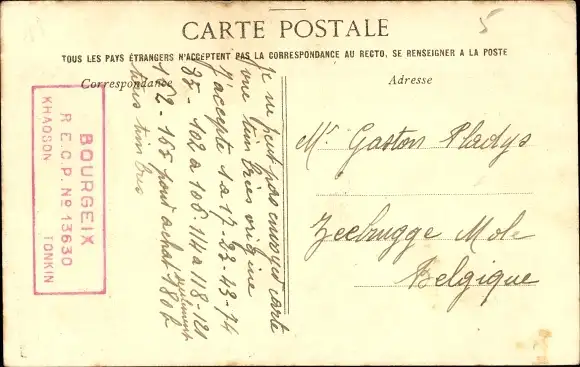 5
CARTE POSTALE
TOUS LES PAYS ÉTRANGERS N'ACCEPTENT PAS LA CORRESPONDANCE AU RECTO, SE RENSEIGNER A LA POSTE
Correspondance
Adresse
BOURGEIX
R.E.C.P. No 13630
KHAOSON TONKIN
Je ne peut pas envoyer carte
vue timbrées origine
J'accepte 1 a 17-23-43-74
85-102 a 106-114 a 118-121
162-165 pour achat 80 f
seulement
tous timbres
Mr Gaston Pladys
Zeebrugge Mole
Belgique